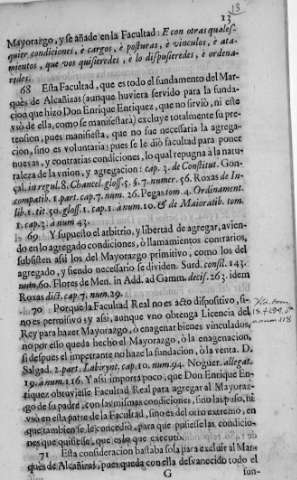 13
13
Mayorazgo, y se añade en la Facultad: E con otras quales-
quier condiciones, è cargos, è posturas, è vinculos, è ata-
mientos, que vos quisieredes, è lo dispusieredes, è ordena-
redes.
68 Esta Facultad, que es todo el fundamento del Mar-
quès de Alcañizas (aunque huviera servido para la funda-
cion que hizo Don Enrique Enriquez, que no sirviò, ni este
vsò de ella, como se manifestarà) excluye totalmente su pre-
tension, pues manifiesta, que no fue necessaria la agrega-
cion, sino es voluntaria: pues se le diò facultad para poner
nuevas, y contrarias condiciones, lo qual repugna à la natu-
raleza de la vnion, y agregacion: cap. 3. de Constitut. Gon-
çal. in regul. 8. Chancel. gloss. 5. §. 7. numer. 56. Roxas de In-
compatib. 1. part. cap. 7. num. 26. Pegas tom. 4. Ordinament.
lib. 1. tit. 50. gloss. 1. cap. 1. à num. 10. & de Maioratib. tom.
1. cap. 3. à num. 43.
69 Y supuesto el arbitrio, y libertad de agregar, avien-
do en lo agregado condiciones, ò llamamientos contrarios,
subsisten assi los del Mayorazgo primitivo, como los del
agregado, y siendo necessario se dividen. Surd. consil. 143.
num. 60. Flores de Men. in Add. ad Gamm. decis. 263. idem
Roxas dict. cap. 7. num. 29.
70 Porque la Facultad Real no es acto dispositivo, si-
no es permissivo: y assi, aunque vno obtenga Licencia del
Rey para hazer Mayorazgo, ò enagenar bienes vinculados,
no por esso queda hecho el Mayorazgo, ò la enagenacion,
si despues el impetrante no haze la fundacion, ò la venta. D.
Salgad. 1. part. Labyryt. cap. 10. num. 94. Noguer. allegat.
19. à num. 116. Y assi importa poco, que Don Enrique En-
riquez obtuviesse Facultad Real para agregar al Mayoraz-
go de su padre, con las mismas condiciones, sino las puso, ni
vsò en esta parte de la Facultad, sino es del otro extremo, en
que tambien se le concediò, para que pusiesse las condicio-
nes que quisiesse, que es lo que executò.
71 Esta consideracion bastaba sola para excluir al Mar-
quès de Alcañizas, pues queda con ella desvanecido todo el
G
fun-